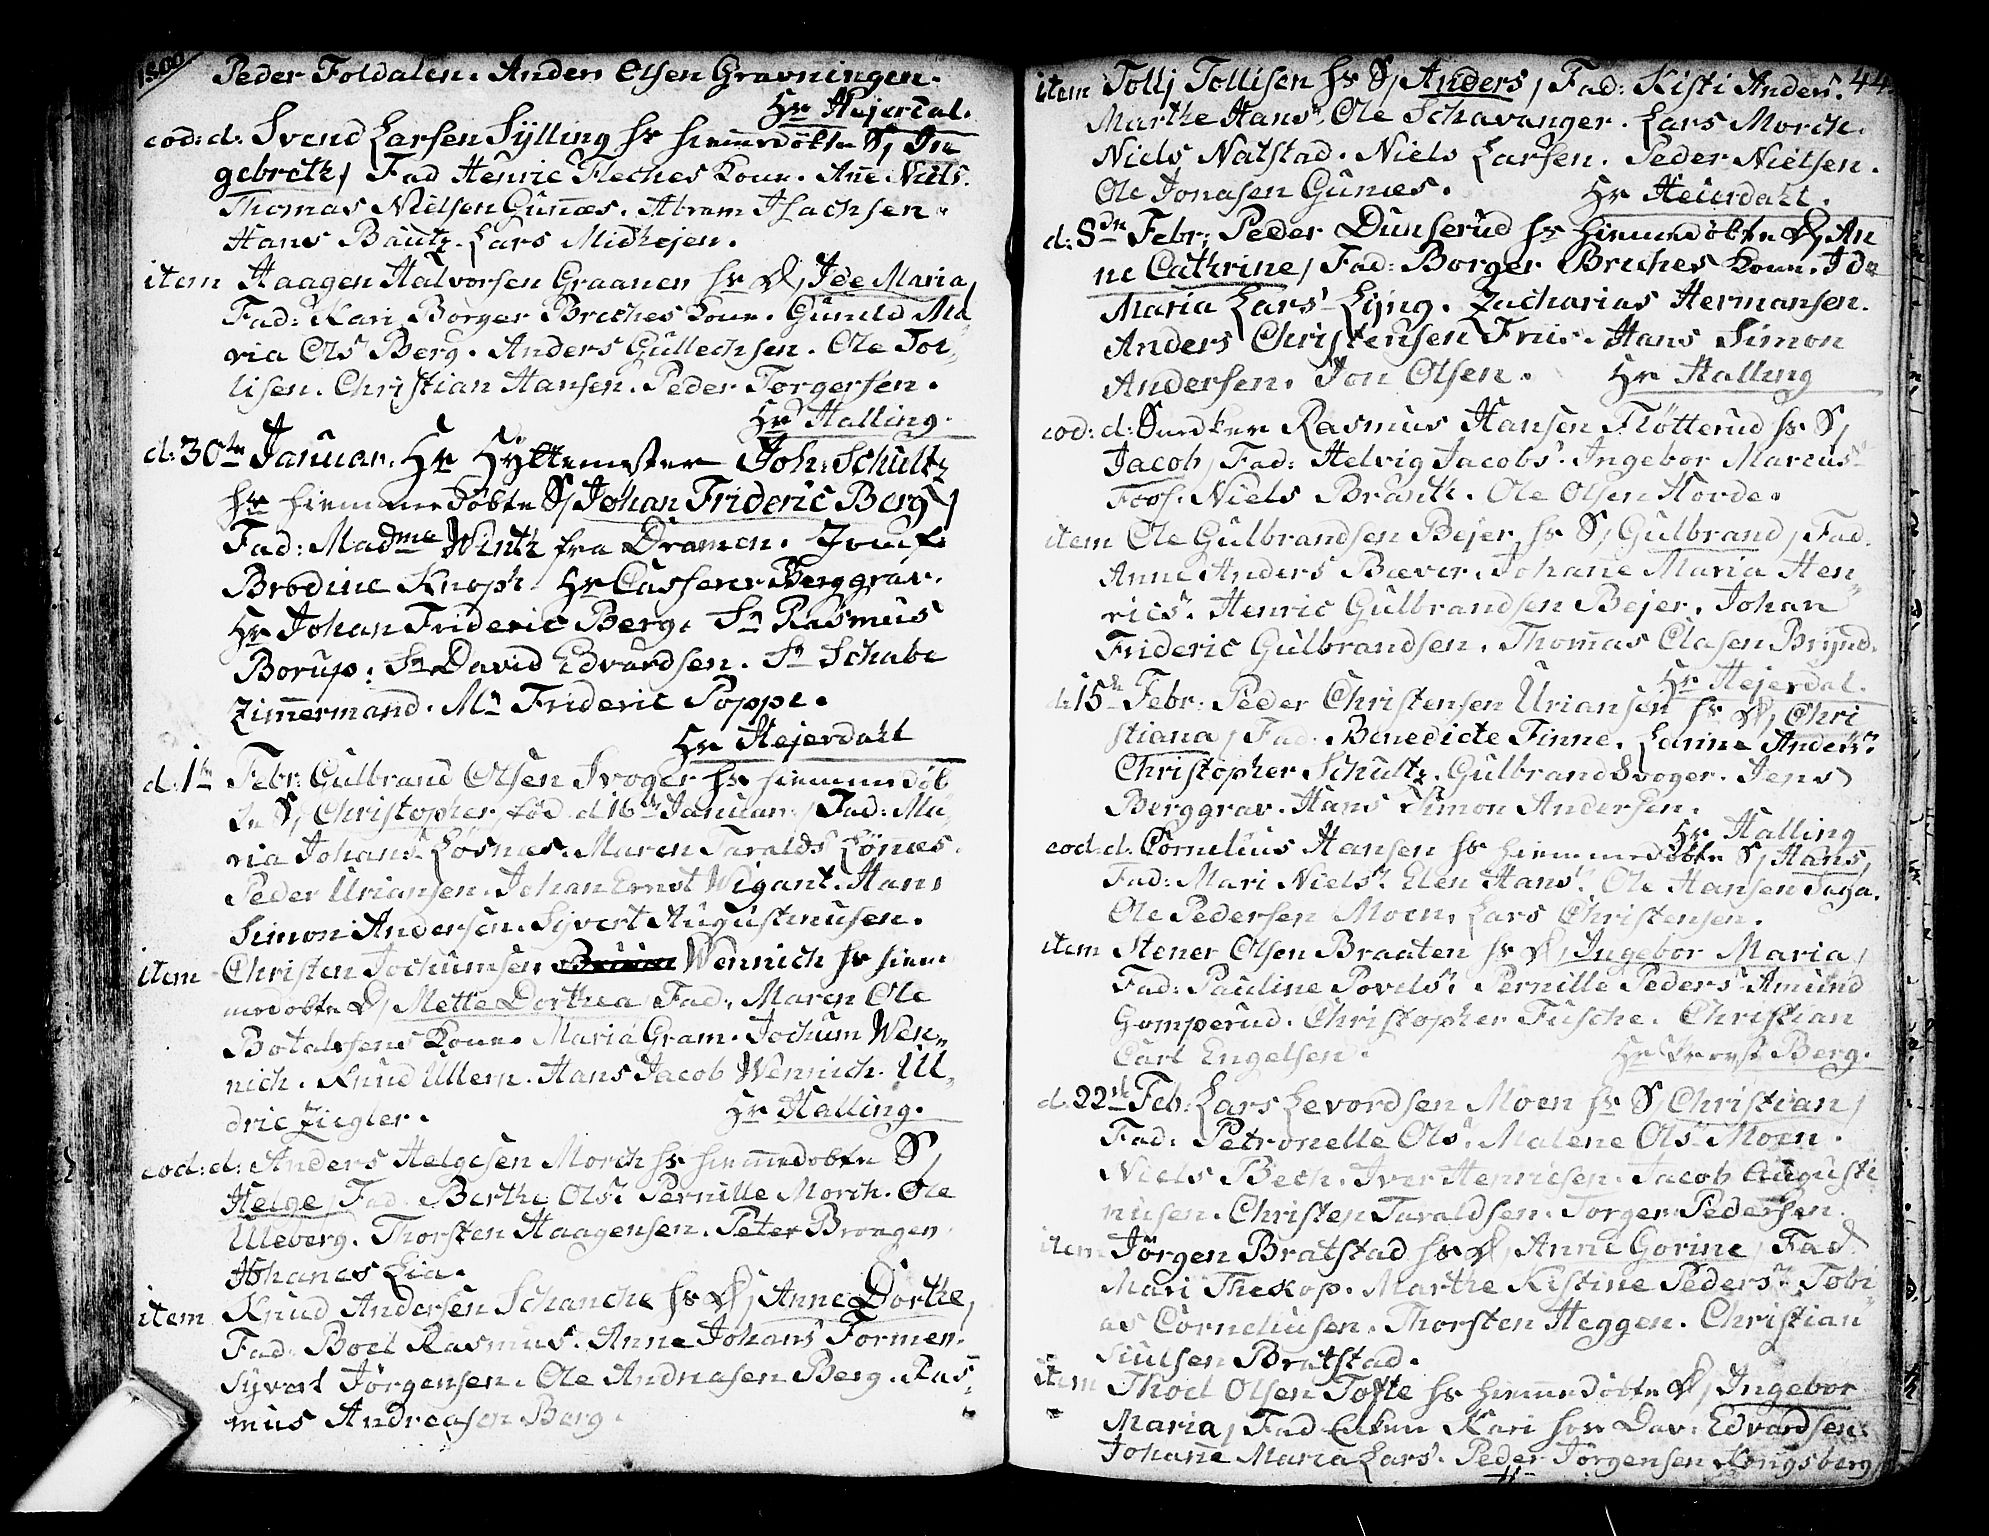 1800
Peder Foldalen. Anders Olsen Gravningen.
Hr Hejerdal.
eod: d: Svend Larsen Sÿlling hs hiemedøbte S, In
gebreth, Fad Henric Fleches Kone. Ane Niels.
Thomas Nielsen Gunæs. Abram Isachsen.
Hans Bautz. Lars Midhejen.
item Haagen Halvorsen Graanen hs D, Ide Maria,
Fad: Kari Borger Breches Kone. Gunild Ma
ria Ols Berg. Anders Gullechsen. Ole Tol-
lisen. Christian Hansen. Peder Torgersen.
Hr Halling.
d: 30te Januar. Hr Hÿttemester Joh: Schultz
hs hiemmedøbte S, Johan Frideric Berg,
Fad: Madme Winth fra Dramen. Jomf.
Brodine Knoph. Hr Casserer Berggrav.
Hr Johan Frideric Berg. Sr Rasmus
Borup. Sr David Edvardsen. Sr Schabe
Zimmermand. Mr Frideric Poppe.
Hr Hejerdahl
d: 1te Febr: Gulbrand Olsen Svoger hs hiemmedøb
te S, Christopher, fød d 16de Januar, Fad: Ma-
ria Johans Løsnæs. Maren Taralds Lønæs.
Peder Uriansen. Johan Ernst Wigant. Hans
Simon Andersen. Sÿvert Augustinusen.
item Christen Jochumsen Wennich hs hiem
medøbte D, Mette Dorthea, Fad: Maren Ole
Botalvsens Kone. Maria Gram. Jochum Wen-
nich. Knud Ullern. Hans Jacob Wennich. Ul-
dric Ziegler.
Hr Halling.
eod: d: Anders Helgesen Morch hs hiemedøbte S,
Helge, Fad. Berthe Ols. Pernille Morch. Ole
Uleberg. Thorsten Haagensen. Peter Brongen
Johanes Lia.
item Knud Andersen Schanche hs D, Anne Dorthe,
Fad: Boel Rasmus. Anne Johans Formen.
Sÿvert Jørgensen. Ole Andreasen Berg. Ras-
mus Andreasen Berg.
44
item Tollj Tollisen hs S, Anders, Fad: Kisti Anders.
Marthe Hans. Ole Schavanger. Lars Morch.
Niels Natstad. Niels Larsen. Peder Nielsen.
Ole Jonasen Gunæs.
Hr Heierdahl.
d: 8de Febr: Peder Dunserud hs hiemmedøbte D, An
ne Cathrine, Fad: Borger Breches Kone. Ide
Maria Lars Ljng. Zacharias Hermansen.
Anders Christensen Friis. Hans Simon
Andersen. Jon Olsen.
Hr Halling
eod: d: Snedker Rasmus Hansen Fløtterud hs S,
Jacob, Fad: Helvig Jacobs. Ingebor Marcus
Foss. Niels Branth. Ole Olsen Horde.
item Ole Gulbrandsen Bejer hs S, Gulbrand, Fad.
Anne Anders Bæver. Johane Maria Hen-
rics. Henric Gulbrandsen Bejer. Johan
Frideric Gulbrandsen. Thomas Clasen Brÿnd.
Hr Hejerdal.
d: 15de Febr: Peder Christensen Uriansen hs D, Chri
stiana, Fad: Benedicte Finne. Anders.
Christopher Schultz. Gulbrand Svoger. Jens
Berggrav. Hans Simon Andersen.
Hr Halling
eod: d: Cornelius Hansen hs hiemmedøbte S, Hans,
Fad: Mari Niels. Elen Hans. Ole Hansen Saga.
Ole Pedersen Moen. Lars Christensen.
item Stener Olsen Braaten hs D, Ingebor Maria,
Fad: Pauline Povels. Pernille Peders Amund
Gomperud. Christopher Fusche. Christian
Carl Engelsen.
Hr Provst Berg.
d: 22de Feb: Lars Levordsen Moen hs S, Christian,
Fad: Petronelle Ols. Malene Ols Moen.
Niels Bech. Iver Henricsen. Jacob Augusti
nusen. Christen Taraldsen. Torger Pedersen.
item Jörgen Bratstad hs D, Anne Gorine, Fad
Mari Thekop. Marthe Kistine Peders. Tobi-
as Corneliusen. Thorsten Heggen. Christian
Siulsen Bratstad.
item Thoel Olsen Tofte hs hiemedøbte D, Ingebor
Maria, Fad Enken Kari hos Dav: Edvardsen.
Johane Maria Lars. Peder Jörgensen Kongsberg